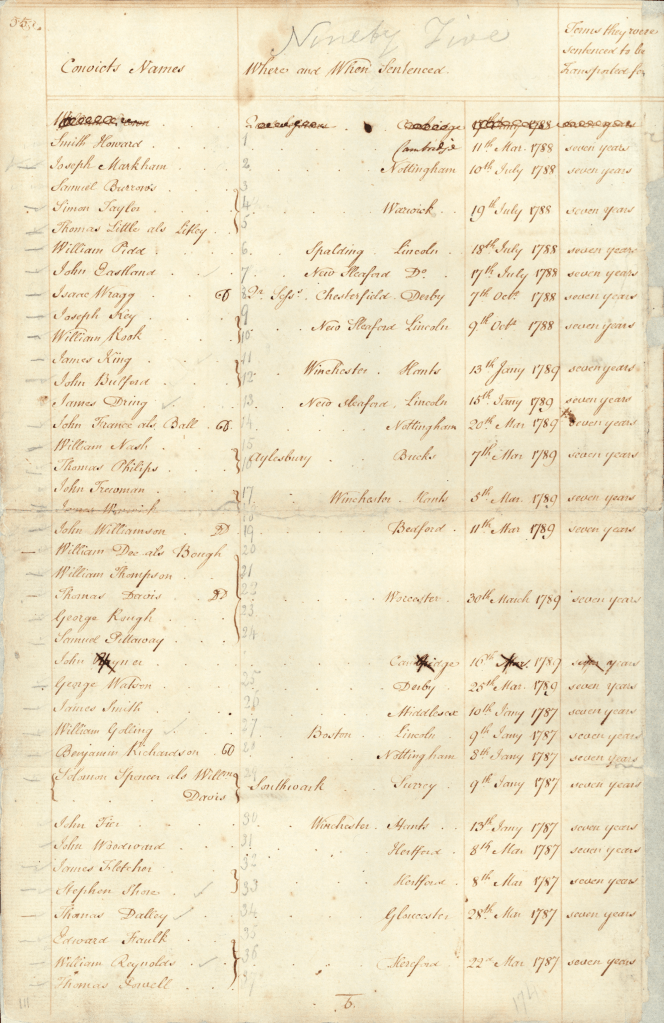 Ninety Five
Convicts Names Where and When Sentenced. Terms they were
sentenced to be
Transported for
Smith Howard 1 Cambridge 11th Mar. 1788 seven years
Joseph Markham 2 Nottingham 10th July 1788 seven years
Samuel Burrows 3
Simon Taylor 4 Warwick 19th July 1788 seven years
Thomas Little als Litley 5
William Pidd 6 Spalding Lincoln 18th July 1788 seven years
John Eastland 7 New Sleaford Do. 17th July 1788 seven years
Isaac Wragg 8 Qr Sesss. Chesterfield Derby 7th Octr. 1788 seven years
Joseph 9
William Rook 10 New Sleaford Lincoln 9th Octr 1788 seven years
James King 11
John Bulford 12 Winchester Hants 13th Jany 1789 seven years
James Dring 13 New Sleaford Lincoln 15th Jany 1789 seven years
John France als Ball 14 Nottingham 20th Mar 1789 seven years
William Nash 15
Thomas Philips 16 Aylesbury Bucks 7th Mar 1789 seven years
John Trewman 17
James Warwick Winchester Hants 5th Mar. 1789 seven years
John Williamson DD 19 Bedford 11th Mar 1789 seven years
William Doe als Bough 20
William Thompson 21
Thomas Davis DD 22 Worcester 30th March 1789 seven years
George Rough 23
Samuel Pillaway 24
John Cambridge 16th Mar. 1789 seven years
George Watson 25 Derby 25th Mar. 1789 seven years
James Smith 26 Middlesex 10th Jany 1787 seven years
William Golling 27 Boston Lincoln 9th Jany 1787 seven years
Benjamin Richardson 28 Nottingham 8th Jany 1787 seven years
Solomon Spencer als Willm
Davis Southwark Surrey 9th Jany 1787 seven years
John Tier 30 Winchester Hants 13th Jany 1787 seven years
John Woodward 31 Hertford 8th Mar 1787 seven years
James Fletcher 32
Stephen Shore 33 Hertford 8th Mar 1787 seven years
Thomas Datiey 34 Gloucester 28th Mar 1787 seven years
Edward Faulk 35
William Reynolds 36 Hereford 22d Mar 1787 seven years
Thomas Powell 37
6.